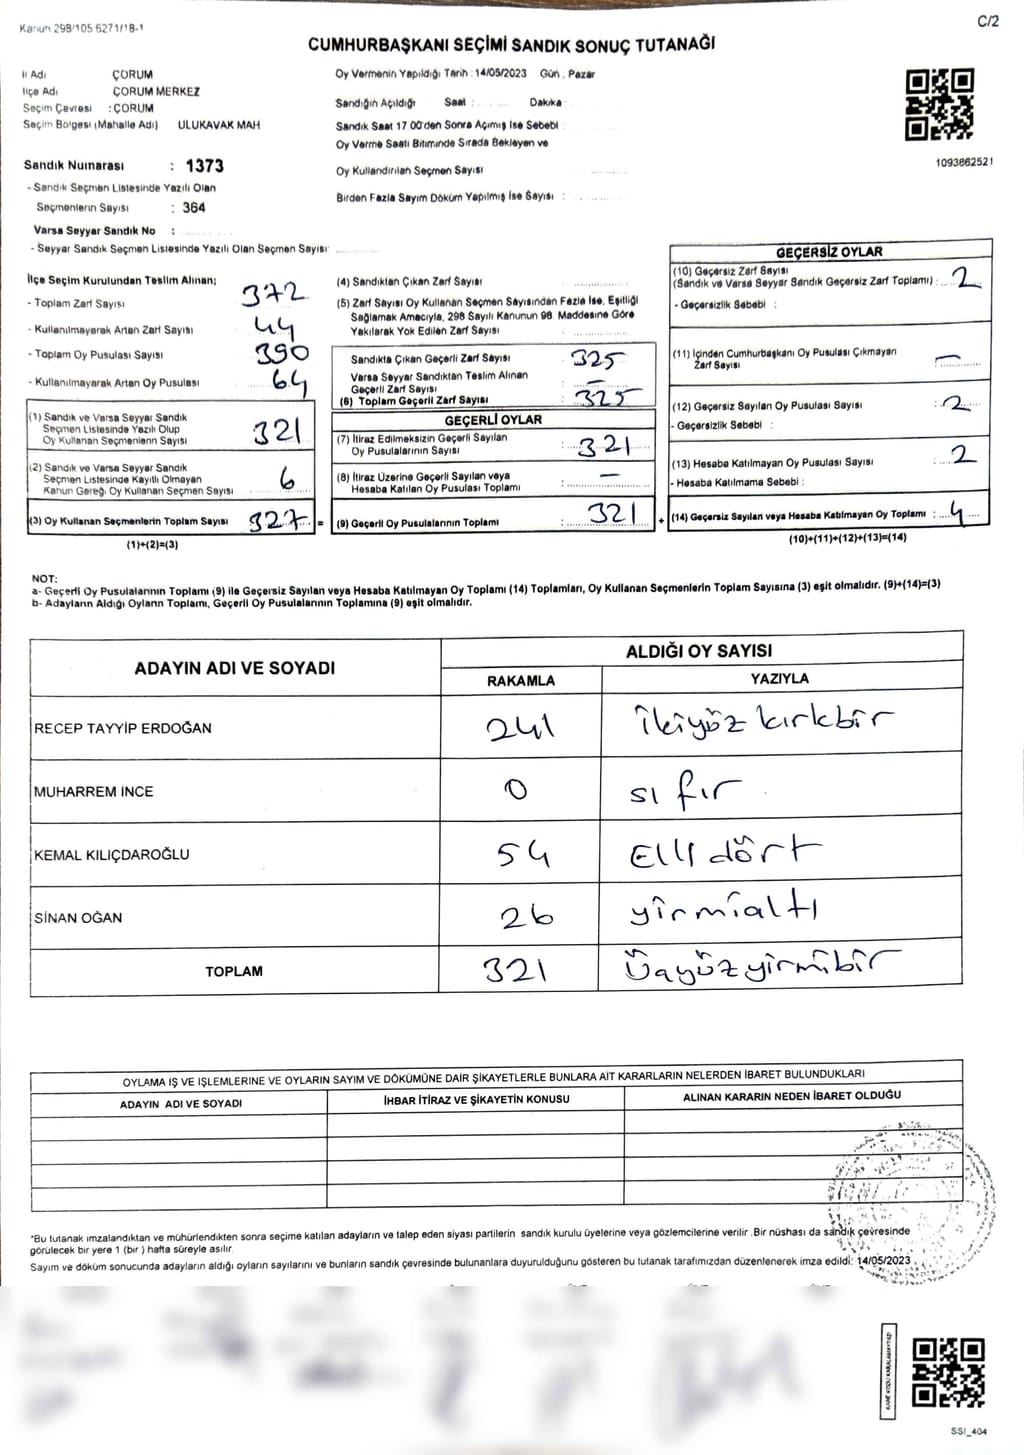 Kanun 298/105 6271/18-1
C/2
CUMHURBAŞKANI SEÇİMİ SANDIK SONUÇ TUTANAĞI
İl Adı ÇORUM
İlçe Adı ÇORUM MERKEZ
Seçim Çevresi : ÇORUM
Seçim Bölgesi (Mahalle Adı) ULUKAVAK MAH
Sandık Numarası : 1373
- Sandık Seçmen Listesinde Yazılı Olan
Seçmenlerin Sayısı : 364
Varsa Seyyar Sandık No :
- Seyyar Sandık Seçmen Listesinde Yazılı Olan Seçmen Sayısı:
Oy Vermenin Yapıldığı Tarih : 14/05/2023 Gün : Pazar
Sandığın Açıldığı Saat : Dakika :
Sandık Saat 17 00'den Sonra Açımış İse Sebebi :
Oy Verme Saati Bitiminde Sırada Bekleyen ve
Oy Kullandırılan Seçmen Sayısı
Birden Fazla Sayım Döküm Yapılmış İse Sayısı :
1093862521
İlçe Seçim Kurulundan Teslim Alınan;
- Toplam Zarf Sayısı 372
- Kullanılmayarak Artan Zarf Sayısı 44
- Toplam Oy Pusulası Sayısı 390
- Kullanılmayarak Artan Oy Pusulası 64
(1) Sandık ve Varsa Seyyar Sandık
Seçmen Listesinde Yazılı Olup
Oy Kullanan Seçmenlerin Sayısı 321
(2) Sandık ve Varsa Seyyar Sandık
Seçmen Listesinde Kayıtlı Olmayan
Kanun Gereği Oy Kullanan Seçmen Sayısı 6
(3) Oy Kullanan Seçmenlerin Toplam Sayısı 327 =
(1)+(2)=(3)
(4) Sandıktan Çıkan Zarf Sayısı
(5) Zarf Sayısı Oy Kullanan Seçmen Sayısından Fazla İse, Eşitliği
Sağlamak Amacıyla, 298 Sayılı Kanunun 98 Maddesine Göre
Yakılarak Yok Edilen Zarf Sayısı
Sandıkta Çıkan Geçerli Zarf Sayısı 325
Varsa Seyyar Sandıktan Teslim Alınan
Geçerli Zarf Sayısı –
(6) Toplam Geçerli Zarf Sayısı 325
GEÇERLİ OYLAR
(7) İtiraz Edilmeksizin Geçerli Sayılan
Oy Pusulalarının Sayısı : 321
(8) İtiraz Üzerine Geçerli Sayılan veya
Hesaba Katılan Oy Pusulası Toplamı : –
(9) Geçerli Oy Pusulalarının Toplamı : 321 +
GEÇERSİZ OYLAR
(10) Geçersiz Zarf Sayısı
(Sandık ve Varsa Seyyar Sandık Geçersiz Zarf Toplamı) : 2
- Geçersizlik Sebebi :
(11) İçinden Cumhurbaşkanı Oy Pusulası Çıkmayan
Zarf Sayısı : –
(12) Geçersiz Sayılan Oy Pusulası Sayısı : 2
- Geçersizlik Sebebi :
(13) Hesaba Katılmayan Oy Pusulası Sayısı : 2
- Hesaba Katılmama Sebebi :
(14) Geçersiz Sayılan veya Hesaba Katılmayan Oy Toplamı : 4
(10)+(11)+(12)+(13)=(14)
NOT:
a- Geçerli Oy Pusulalarının Toplamı (9) ile Geçersiz Sayılan veya Hesaba Katılmayan Oy Toplamı (14) Toplamları, Oy Kullanan Seçmenlerin Toplam Sayısına (3) eşit olmalıdır. (9)+(14)=(3)
b- Adayların Aldığı Oyların Toplamı, Geçerli Oy Pusulalarının Toplamına (9) eşit olmalıdır.
ADAYIN ADI VE SOYADI
ALDIĞI OY SAYISI
RAKAMLA YAZIYLA
RECEP TAYYİP ERDOĞAN 241 İkiyüz kırkbir
MUHARREM İNCE 0 sıfır
KEMAL KILIÇDAROĞLU 54 Elli dört
SİNAN OĞAN 26 yirmialtı
TOPLAM 321 Üçyüzyirmibir
OYLAMA İŞ VE İŞLEMLERİNE VE OYLARIN SAYIM VE DÖKÜMÜNE DAİR ŞİKAYETLERLE BUNLARA AİT KARARLARIN NELERDEN İBARET BULUNDUKLARI
ADAYIN ADI VE SOYADI İHBAR İTİRAZ VE ŞİKAYETİN KONUSU ALINAN KARARIN NEDEN İBARET OLDUĞU
*Bu tutanak imzalandıktan ve mühürlendikten sonra seçime katılan adayların ve talep eden siyasi partilerin sandık kurulu üyelerine veya gözlemcilerine verilir .Bir nüshası da sandık çevresinde
görülecek bir yere 1 (bir ) hafta süreyle asılır.
Sayım ve döküm sonucunda adayların aldığı oyların sayılarını ve bunların sandık çevresinde bulunanlara duyurulduğunu gösteren bu tutanak tarafımızdan düzenlenerek imza edildi: 14/05/2023
KARE KODU KARALAMAYINIZ!
SSI_404